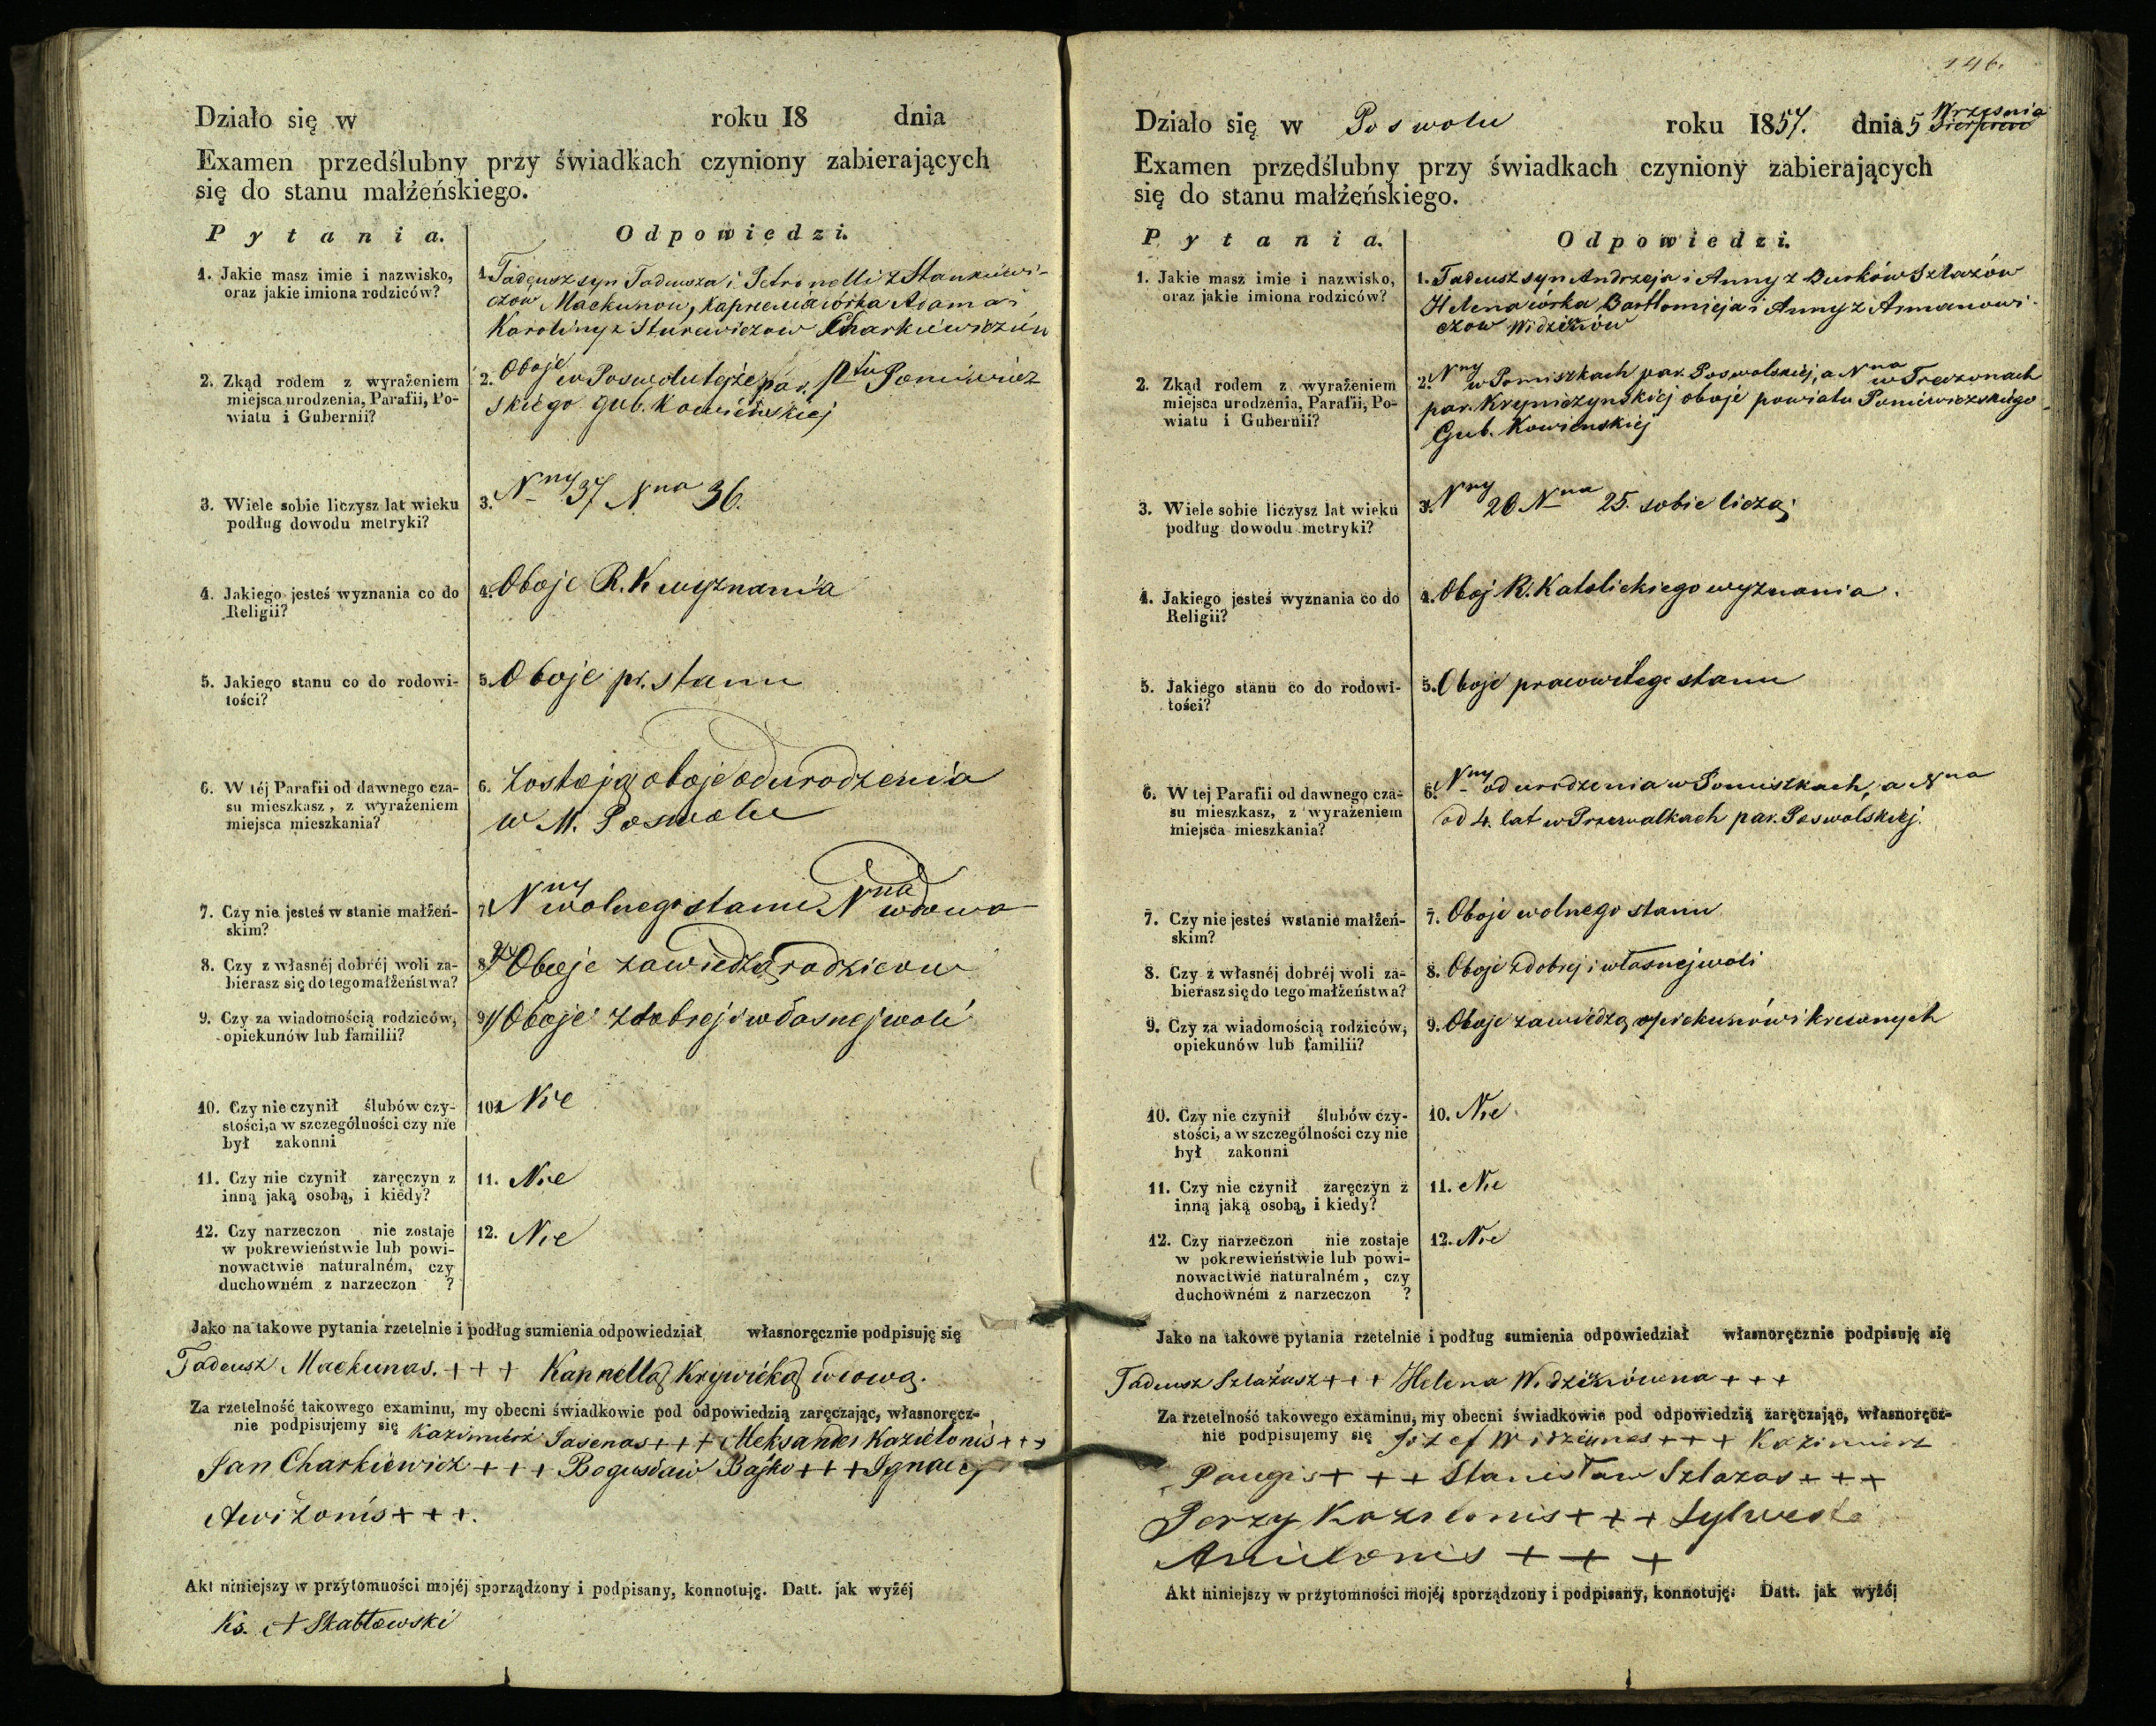 Działo się w roku 18 dnia
Examen przedślubny przy świadkach czyniony zabierających
się do stanu małżeńskiego.
Pytania. Odpowiedzi.
1. Jakie masz imie i nazwisko,
oraz jakie imiona rodziców?
1. Tadeusz syn Tadeusza i Petronelli z Stankiewi-
czow Mackunow, córka Adama i
Karoliny z Charkiewiczów
2. Zkąd rodem z wyrażeniem
miejsca urodzenia, Parafii, Po-
wiatu i Gubernii?
2. Oboje w Poswolu tejże par. Ptu Poniewiez
skiego gub. Kowieńskiej
3. Wiele sobie liczysz lat wieku
podług dowodu metryki?
3. Nny 37 Nna 36.
4. Jakiego jesteś wyznania co do
Religii?
4. Oboje R. K wyznania
5. Jakiego stanu co do rodowi-
tości?
5. Oboje pr. stanu
6. W téj Parafii od dawnego cza-
su mieszkasz, z wyrażeniem
miejsca mieszkania?
6. Zostają oboje od urodzenia
w M. Poswolu
7. Czy nie jesteś w stanie małżeń-
skim?
7. Nny wolnego stanu Nna wdowa
8. Czy z własnéj dobréj woli za-
bierasz się do tego małżeństwa?
8. Oboje za wiedzą rodzicow
9. Czy za wiadomością rodziców,
opiekunów lub familii?
9 Oboje z dobrej i własnej woli
10. Czy nie czynił ślubów czy-
stości, a w szczególności czy nie
był zakonni
10. Nie
11. Czy nie czynił zaręczyn z
inną jaką osobą, i kiedy?
11. Nie
12. Czy narzeczon nie zostaje
w pokrewieństwie lub powi-
nowactwie naturalném, czy
duchowném z narzeczon ?
12. Nie
Jako na takowe pytania rzetelnie i podług sumienia odpowiedział własnoręcznie podpisuję się
Tadeusz Mackunas. +++ Krywicka wdowa.
Za rzetelność takowego examinu, my obecni świadkowie pod odpowiedzią zaręczając, własnoręcz-
nie podpisujemy się Kazimierz Jasenas +++ Aleksander Kazielonis +++
Jan Charkiewicz +++ Bogusław Bajko +++ Ignacy
Awiżonis +++.
Akt niniejszy w przytomności mojéj sporządzony i podpisany, konnotuję. Datt. jak wyżéj
Ks. A Skabłowski
146.
Działo się w Poswolu roku 1857. dnia 5 Września
Examen przedślubny przy świadkach czyniony zabierających
się do stanu małżeńskiego.
Pytania. Odpowiedzi.
1. Jakie masz imie i nazwisko,
oraz jakie imiona rodziców?
1. Tadeusz syn Andrzeja i Anny z Burków Szlazów
Helena córka Bartłomieja i Anny z Armanowi-
czow
2. Zkąd rodem z wyrażeniem
miejsca urodzenia, Parafii, Po-
wiatu i Gubernii?
2. Nny w Pomiszkach par. Poswolskiej, a Nna w
par. Kryniczynskiej oboje powiatu Poniewiezskiego
Gub. Kowienskiej
3. Wiele sobie liczysz lat wieku
podług dowodu metryki?
3. Nny 20 Nna 25. sobie liczą
4. Jakiego jesteś wyznania co do
Religii?
4. Oboj R. Katolickiego wyznania.
5. Jakiego stanu co do rodowi-
tości?
5. Oboje prawowitego stanu
6. W tej Parafii od dawnego cza-
su mieszkasz, z wyrażeniem
miejsca mieszkania?
6. Nny od urodzenia w Pomiszkach, a Nna
od 4. lat w Przewalkach par. Poswolskiej.
7. Czy nie jesteś wstanie małżeń-
skim?
7. Oboje wolnego stanu
8. Czy z własnéj dobréj woli za-
bierasz się do tego małżeństwa?
8. Oboje z dobrej i własnej woli
9. Czy za wiadomością rodziców,
opiekunów lub familii?
9. Oboje za wiedzą opiekunów i krewnych
10. Czy nie czynił ślubów czy-
stości, a w szczególności czy nie
był zakonni
10. Nie
11. Czy nie czynił zaręczyn z
inną jaką osobą, i kiedy?
11. Nie
12. Czy narzeczon nie zostaje
w pokrewieństwie lub powi-
nowactwie naturalném, czy
duchowném z narzeczon ?
12. Nie
Jako na takowe pytania rzetelnie i podług sumienia odpowiedział własnoręcznie podpisuję się
Tadeusz +++ Helena +++
Za rzetelność takowego examinu, my obecni świadkowie pod odpowiedzią zaręczając, własnoręcz-
nie podpisujemy się Józef +++ Kazimierz
+++ Stanisław Szlazas +++
Jerzy Kazilonis +++
+++
Akt niniejszy w przytomności mojéj sporządzony i podpisany, konnotuję: Datt. jak wyżéj